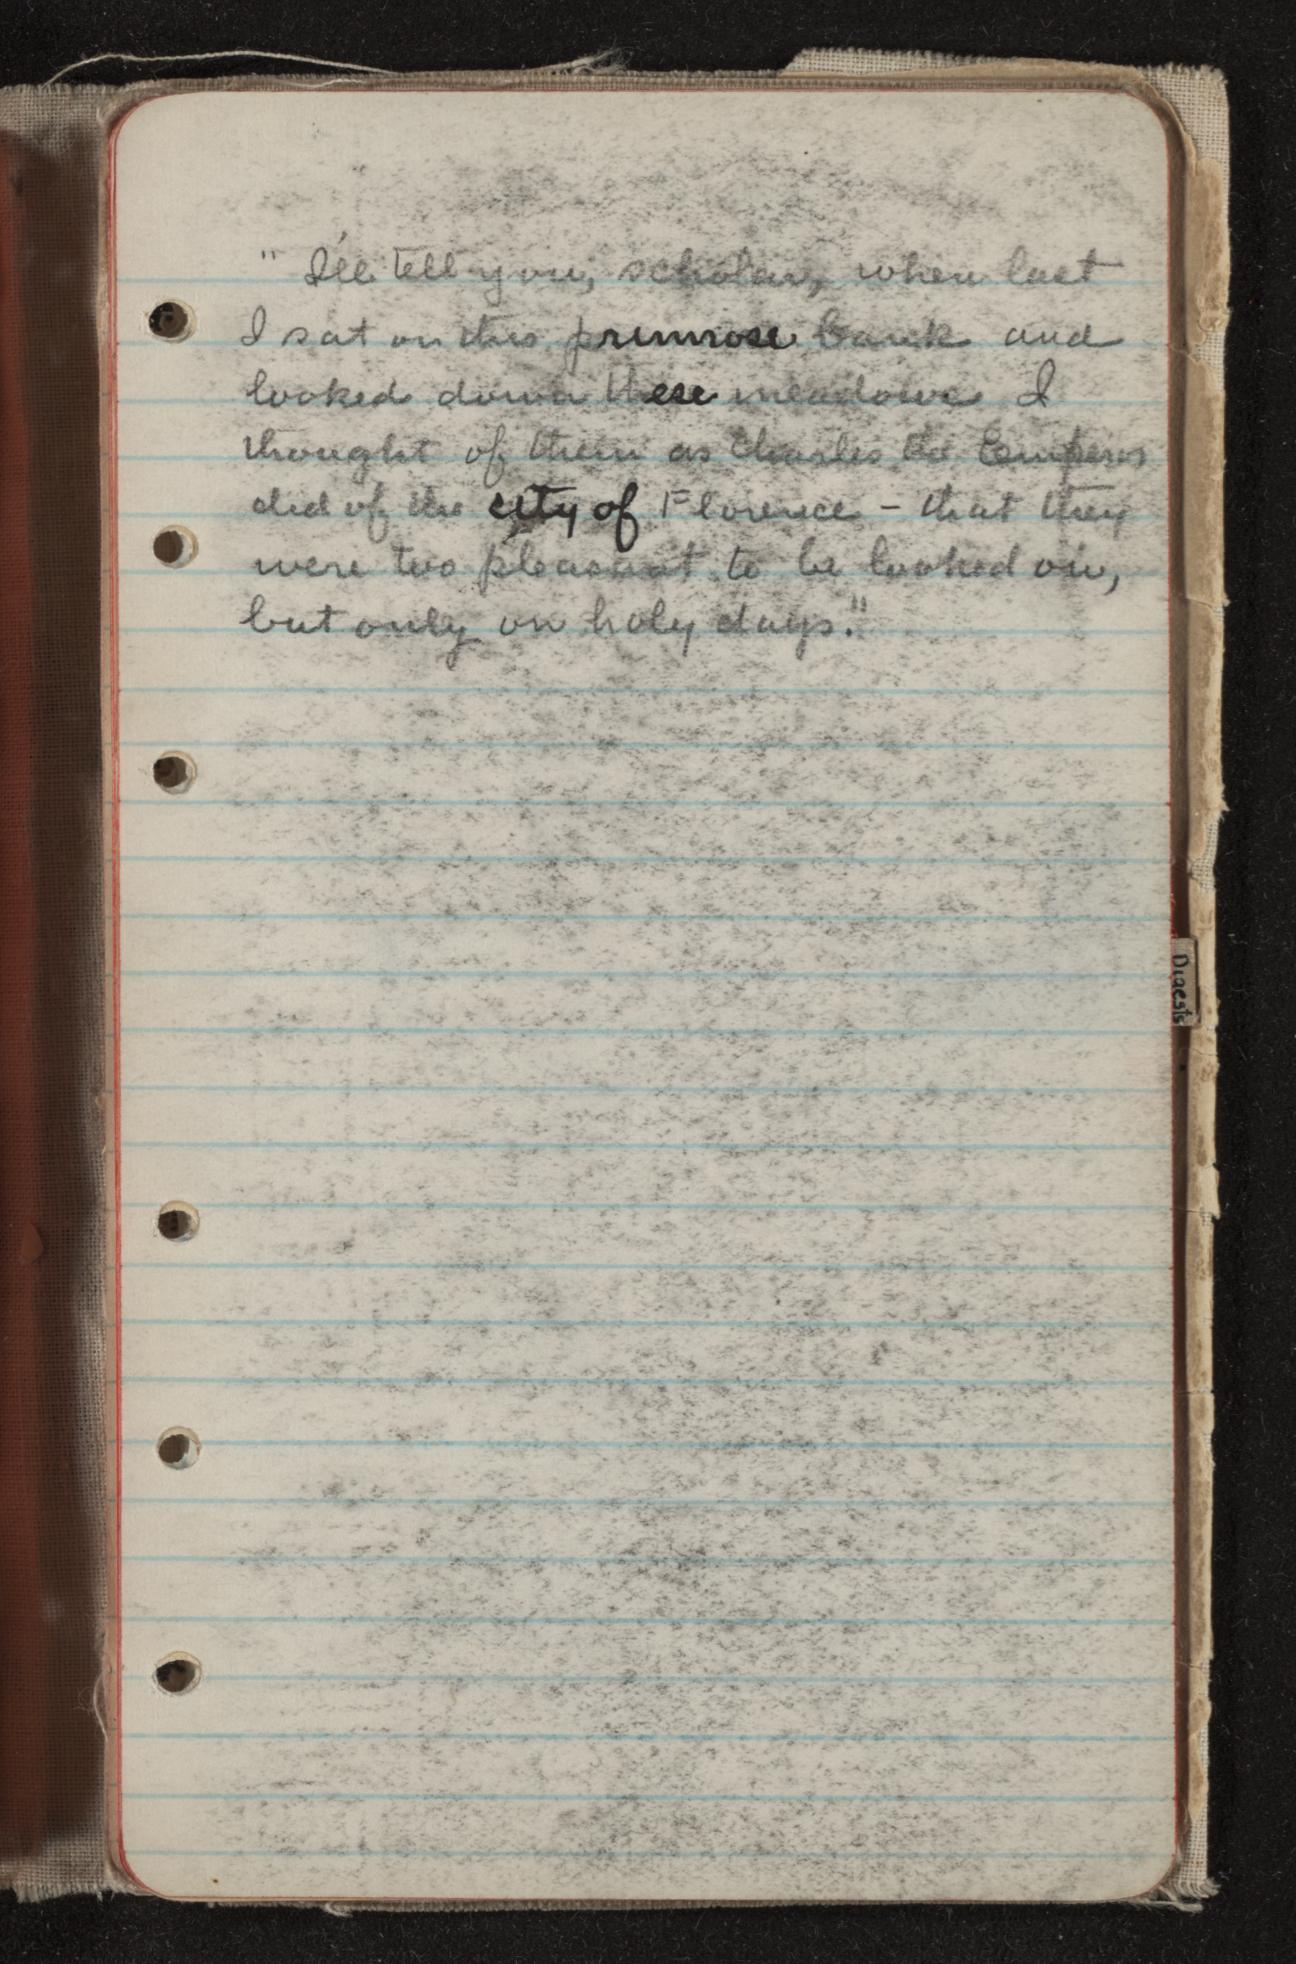 " I'll tell you, scholar, when last
I sat on this primrose bank and
looked down these meadows I
thought of them as Charles the Emperor
did of the city of Florence - that they
were too pleasant to be looked on,
but only on holy days."
Digests